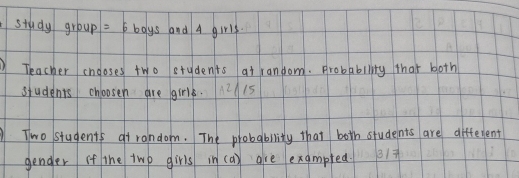 study group = 6 boys and 4 girls.
) Teacher chooses two students at random. Probability that both
students choosen are girls. 2/15
) Two students at random. The probability that both students are different
gender if the two girls in (a) are exampted. 3/7